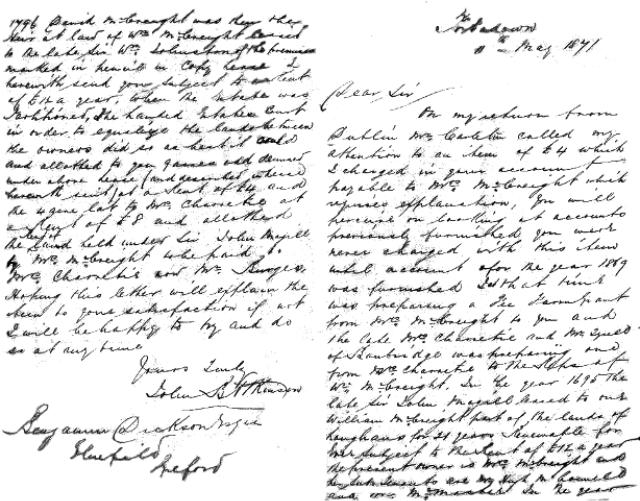 Portadown
11th May 1871
Dear Sir
On my return from
Dublin Mr Carleton called my
attention to an item of £4 which
I charged in your account
payable to Mrs McCreight which
requires explanation, You will
perceive on looking at accounts
previously furnished you were
never charged with this item
until account for the year 1869
was furnished. At that time I
was preparing a Fee Farm Grant
from Mrs McCreight to you and
the late Mrs Charnetic and Mr
of Banbridge was preparing one
from Mrs Charnetic to the Reps of
Wm McCreight. In the year 1695 the
late Sir John Magill leased to one
William McCreight part of the lands of
for 21 years renewable for
ever subject to the rent of £12 a year
the present owner is Mrs McCreight and
the are
and In the year
1796 David McCreight was then the
Heir at law of Wm McCreight leased
to the late Sir Wm Johnston of the premises
marked in pencil in Copy lease I
herewith send you subject to a rent
of £12 a year, when the Estate was
partitioned, the Landed Estates Court
in order to equalize the lands between
the owners did so as best it could
and allotted to you
under above lease (and
herewith sent) at a rent of £4 and
the 4 acre lot to Mrs Charnetic at
a rent of £8 and allotted
the land held under Sir John Magill
by Mrs McCreight who paid to
Mrs Charnetic and Mr Burges.
Hoping this letter will explain the
item to your satisfaction if not
I will be happy to try and do
so at any time
Yours truly
John B Atkinson
Benjamin Dickson Esqre
Gilford